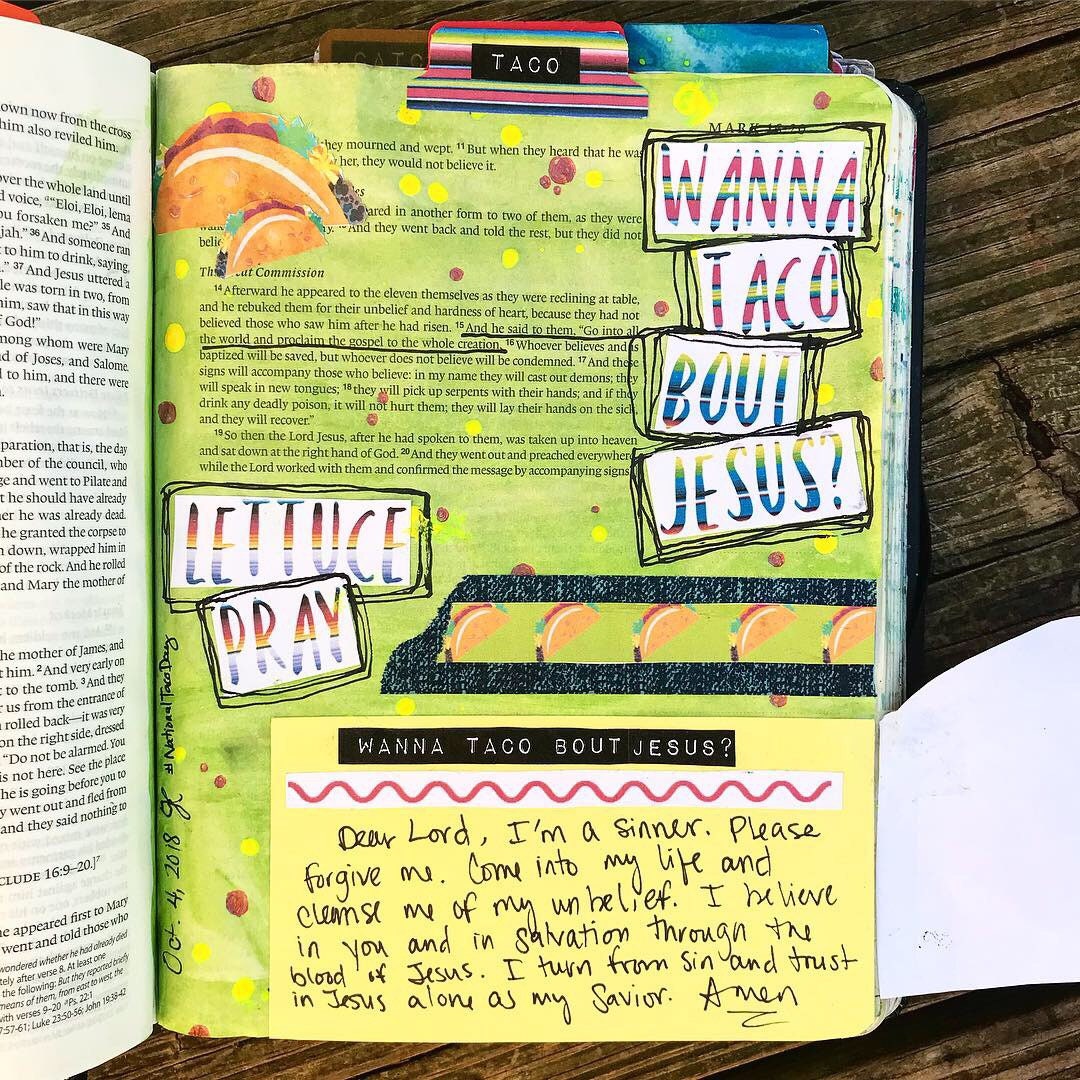 TACO
own now from the cross
him also reviled him.
over the whole land until
d voice, "Eloi, Eloi, lema
ou forsaken me?" 35 And
jah." 36 And someone ran
t to him to drink, saying,
37 And Jesus uttered a
le was torn in two, from
him, saw that in this way
f God!"
mong whom were Mary
d of Joses, and Salome.
d to him, and there were
paration, that is, the day
mber of the council, who
ge and went to Pilate and
t he should have already
er he was already dead.
he granted the corpse to
n down, wrapped him in
of the rock. And he rolled
and Mary the mother of
he mother of James, and
t him. 2 And very early on
t to the tomb. 3 And they
r us from the entrance of
n rolled back—it was very
on the right side, dressed
"Do not be alarmed. You
is not here. See the place
he is going before you to
y went out and fled from
and they said nothing to
CLUDE 16:9–20.]7
he appeared first to Mary
went and told those who
wondered whether he had already died
tely after verse 8. At least one
the following: But they reported briefly
means of them, from east to west, the
with verses 9–20 Ps. 22:1
7:57-61; Luke 23:50-56; John 19:38-42
MARK
they mourned and wept. 11 But when they heard that he was
her, they would not believe it.
ared in another form to two of them, as they were
And they went back and told the rest, but they did not
Commission
14 Afterward he appeared to the eleven themselves as they were reclining at table,
and he rebuked them for their unbelief and hardness of heart, because they had not
believed those who saw him after he had risen. 15 And he said to them, "Go into all
the world and proclaim the gospel to the whole creation. 16 Whoever believes and is
baptized will be saved, but whoever does not believe will be condemned. 17 And these
signs will accompany those who believe: in my name they will cast out demons; they
will speak in new tongues; 18 they will pick up serpents with their hands; and if they
drink any deadly poison, it will not hurt them; they will lay their hands on the sick,
and they will recover."
19 So then the Lord Jesus, after he had spoken to them, was taken up into heaven
and sat down at the right hand of God. 20 And they went out and preached everywhere,
while the Lord worked with them and confirmed the message by accompanying signs.
WANNA
TACO
BOUT
JESUS?
LETTUCE
PRAY
Oct. 4, 2018 #NationalTacoDay
WANNA TACO BOUT JESUS?
Dear Lord, I'm a sinner. Please
forgive me. Come into my life and
cleanse me of my unbelief. I believe
in you and in salvation through the
blood of Jesus. I turn from sin and trust
in Jesus alone as my Savior. Amen